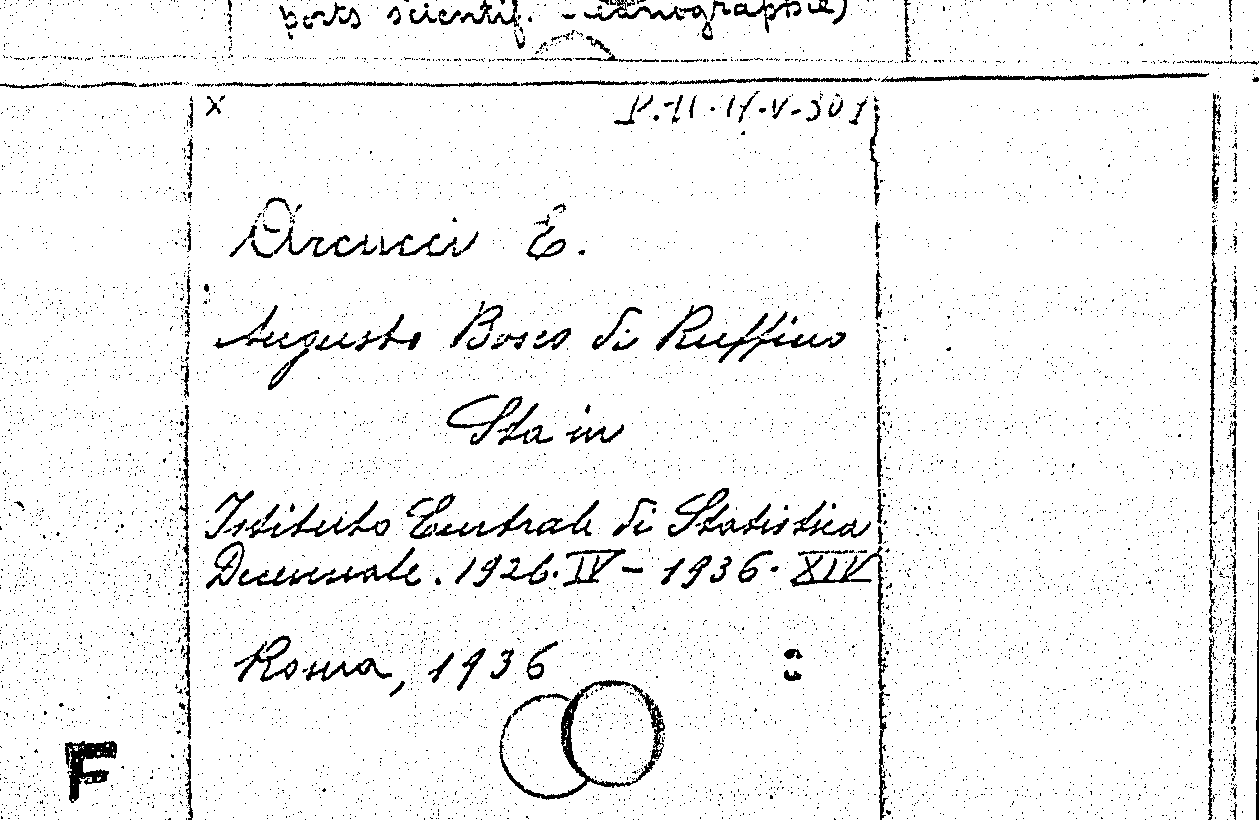 ports scientif. - iconographie)
x
P.II.IV.V.301
Arcucci E.
Augusto Bosco di Ruffino
Sta in
Istituto Centrale di Statistica
Decennale. 1926.IV - 1936. XIV
Roma, 1936
F